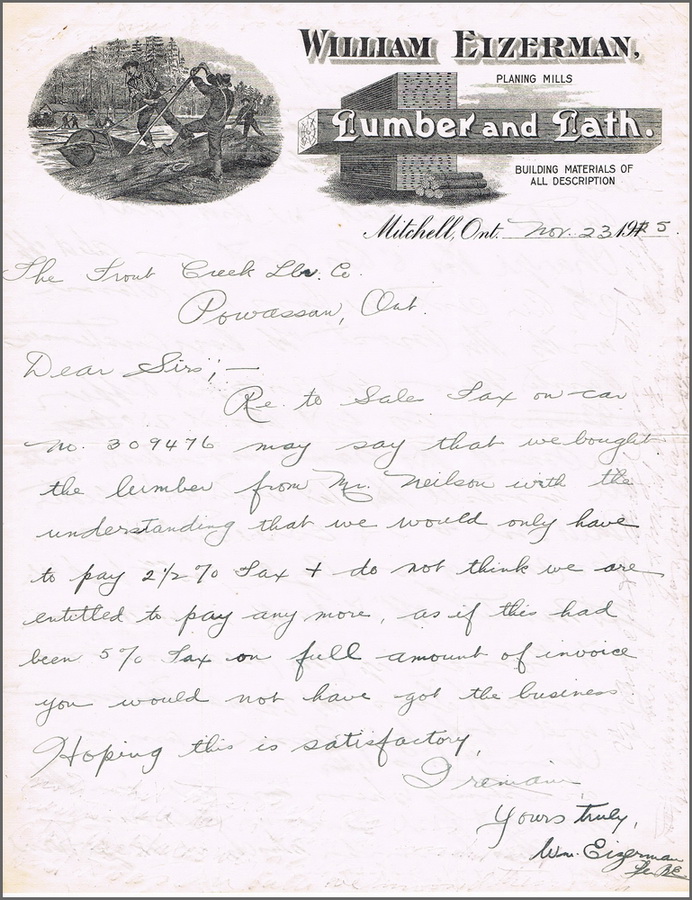 WILLIAM EIZERMAN,
PLANING MILLS
Lumber and Lath.
BUILDING MATERIALS OF
ALL DESCRIPTION
Mitchell, Ont. Nov. 23 1925.
The Trout Creek Lbr. Co.
Powassan, Ont.
Dear Sirs;—
Re. to Sales Tax on car
no. 309476 may say that we bought
the lumber from Mr. Neilson with the
understanding that we would only have
to pay 2 1/2 % Tax + do not think we are
entitled to pay any more, as if this had
been 5 % Tax on full amount of invoice
you would not have got the business.
Hoping this is satisfactory,
I remain
Yours truly,
Wm. Eizerman
Per